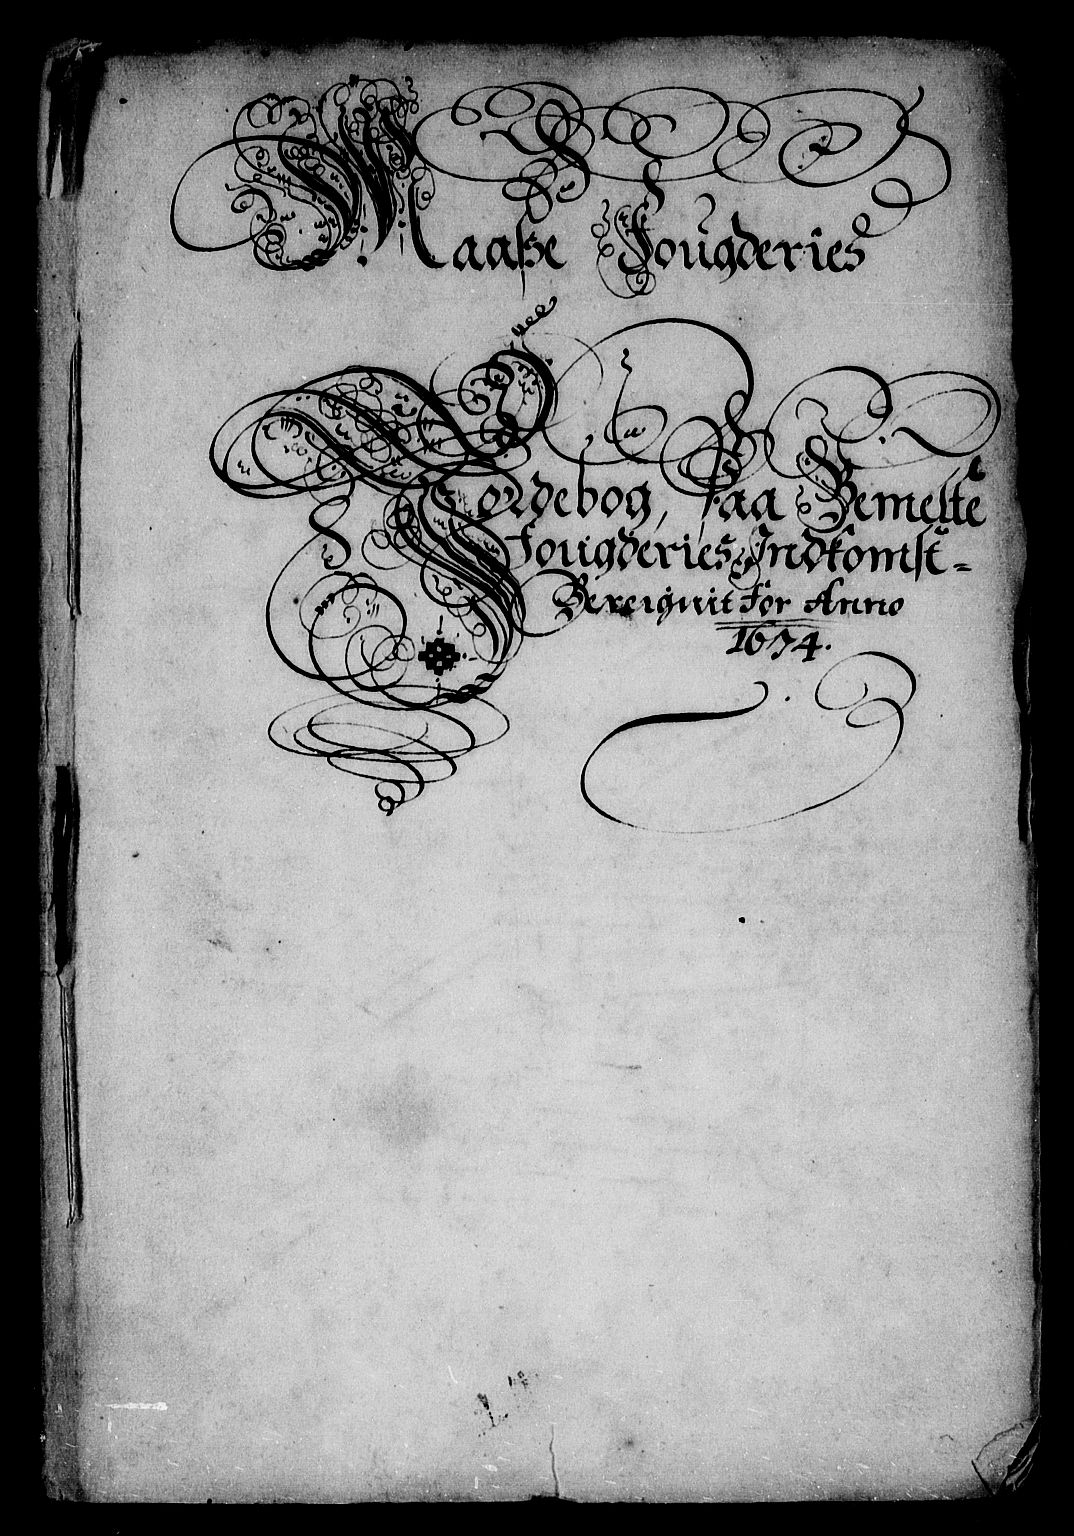 Maaße Fougderies
Jordebog, Paa Bemelte
Fougderies Indkomst=
Bereignit for Anno
1674.